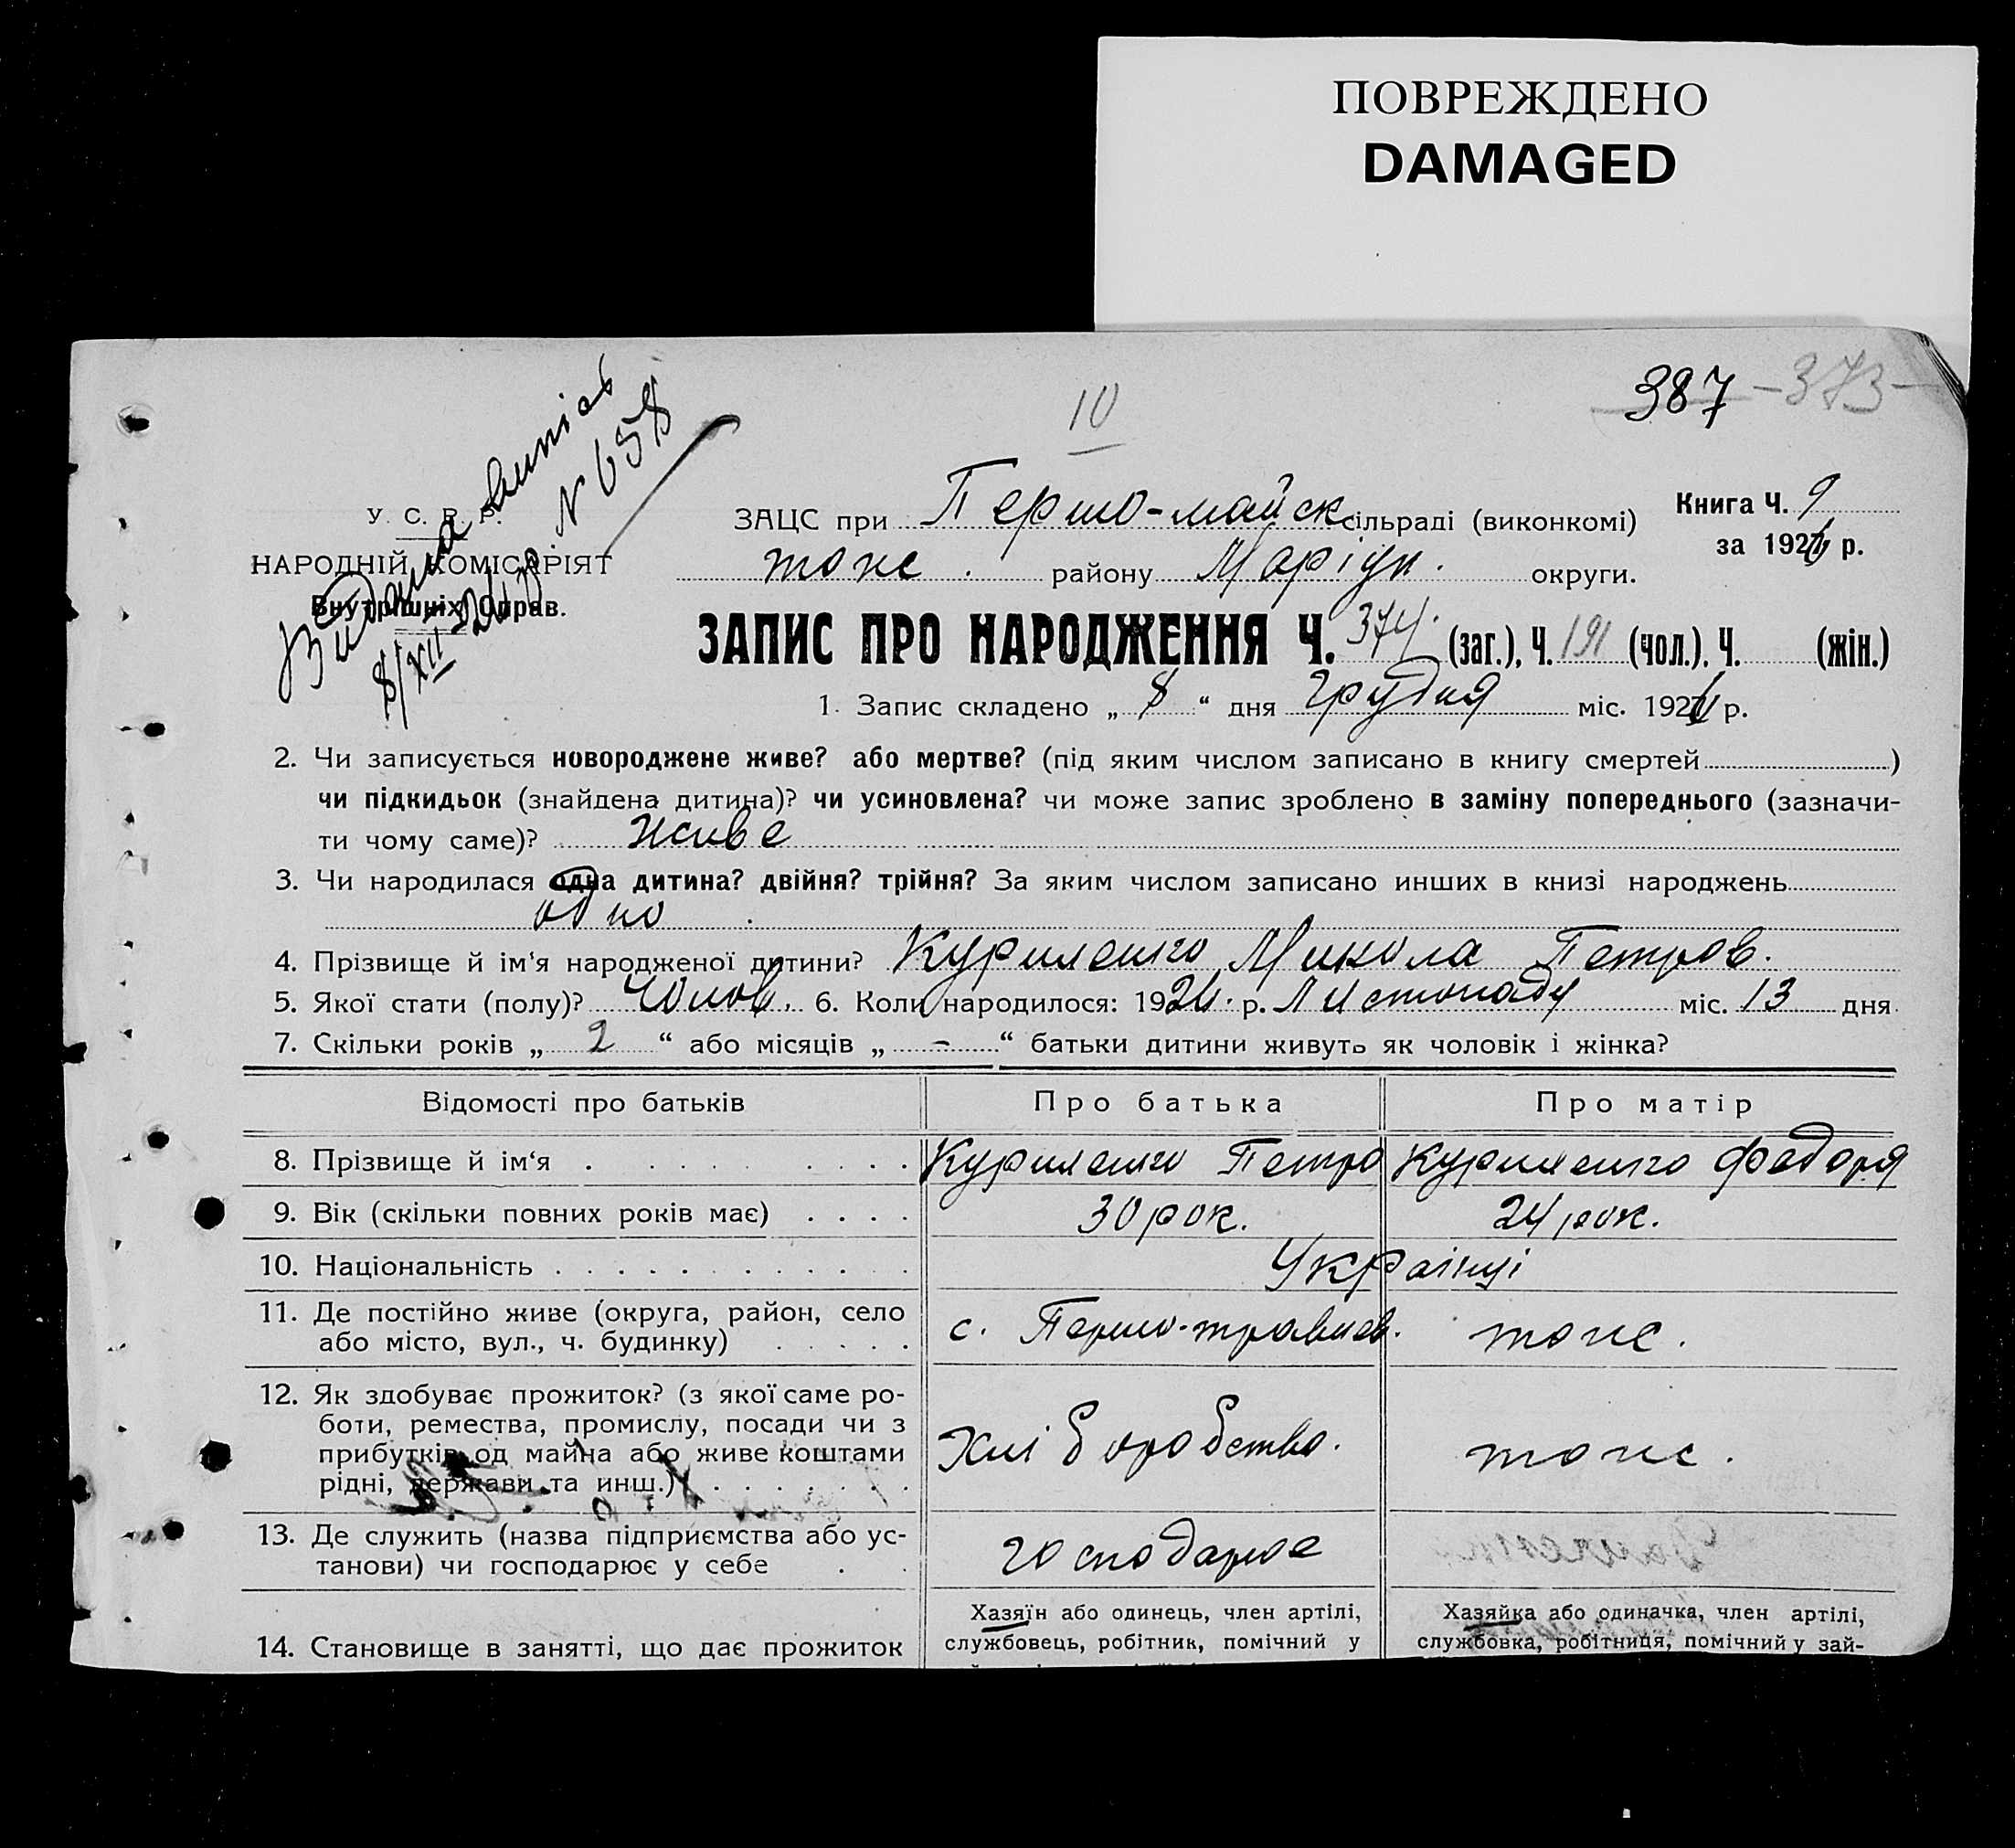 ПОВРЕЖДЕНО
DAMAGED
387 - 373 -
10
Видана випіс
8/XII N 658
У. С. Р. Р.
НАРОДНІЙ КОМІСАРІЯТ
Внутрішніх Справ.
ЗАЦС при Першо-майск сільраді (виконкомі)
Книга Ч. 9
за 192 р.
тоже. району Маріуп. округи.
ЗАПИС ПРО НАРОДЖЕННЯ Ч. 374. (заг.), Ч. 191 (чол.), Ч. (жін.)
1. Запис складено „ 8 “ дня Грудня міс. 192 р.
2. Чи записується новороджене живе? або мертве? (під яким числом записано в книгу смертей )
чи підкидьок (знайдена дитина)? чи усиновлена? чи може запис зроблено в заміну попереднього (зазначи-
ти чому саме)? живе
3. Чи народилася одна дитина? двійня? трійня? За яким числом записано инших в книзі народжень
одно
4. Прізвище й ім‘я народженої дитини? Куриленко Микола Петров.
5. Якої стати (полу)? Чолов. 6. Коли народилося: 192 р. Листопаду міс. 13 дня
7. Скільки років „ 2 “ або місяців „ - “ батьки дитини живуть як чоловік і жінка?
Відомості про батьків Про батька Про матір
8. Прізвище й ім‘я Куриленко Петро Куриленко Федора
9. Вік (скільки повних років має) 30 рок. 24 рок.
10. Національність Українці
11. Де постійно живе (округа, район, село
або місто, вул., ч. будинку)
с. Першо-травнев. тоже.
12. Як здобуває прожиток? (з якої саме ро-
боти, ремества, промислу, посади чи з
прибутків од майна або живе коштами
рідні, держави та инш.)
Хліборобство. тоже.
13. Де служить (назва підприємства або ус-
танови) чи господарює у себе
господарює
14. Становище в занятті, що дає прожиток
Хазяїн або одинець, член артілі,
службовець, робітник, помічний у
Хазяйка або одиначка, член артілі,
службовка, робітниця, помічний у зай-